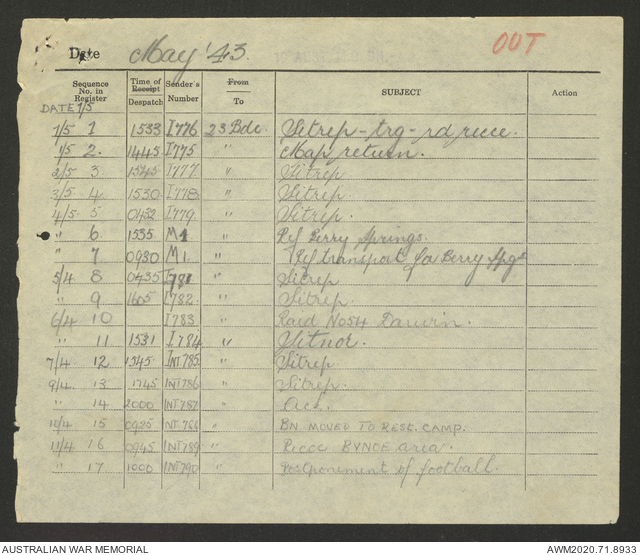 Date May '43 OUT
Sequence No. in Register Time of Receipt Despatch Sender's Number From To SUBJECT Action
DATE 1/5
1/5 1 1533 I776 23 Bde. Sitrep - trg - rd recce.
1/5 2. 1445 I775 " Map return.
2/5 3 1545 I777. " Sitrep
3/5 4. 1530 I778 " Sitrep.
4/5 5 0432 I779 " Sitrep.
" 6. 1535 M1 " Ref Berry Springs.
" 7 0930 M1. " Ref transport for Berry Spgs
5/4 8 0435 I781 " Sitrep
" 9. 1605 I782. " Sitrep.
6/4 10 I783. " Raid No54 Darwin.
" 11 1531 I784 " Sitnor.
7/4 12 1345 INT785 " Sitrep
9/4 13 1745 INT786 " Sitrep.
" 14 2000 INT787 " Ack.
10/4 15 0925 INT788 " BN MOVED TO REST. CAMP.
11/4 16 0945 INT789 " Recce BYNOE area.
" 17 1000 INT790 " Postponement of football.
AUSTRALIAN WAR MEMORIAL AWM2020.71.8933